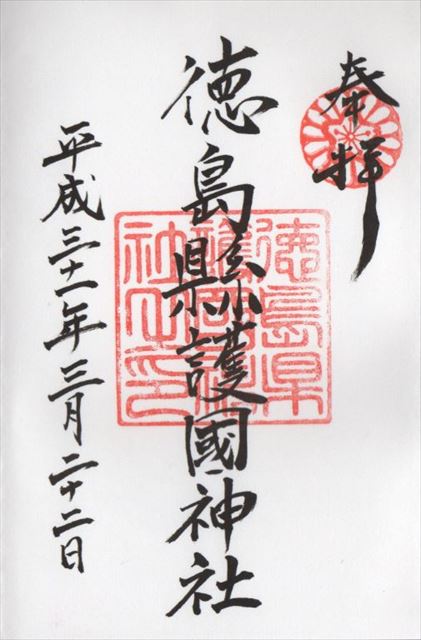 奉拝
徳島縣護國神社
徳島県
護國神
社之印
平成三十一年三月二十二日